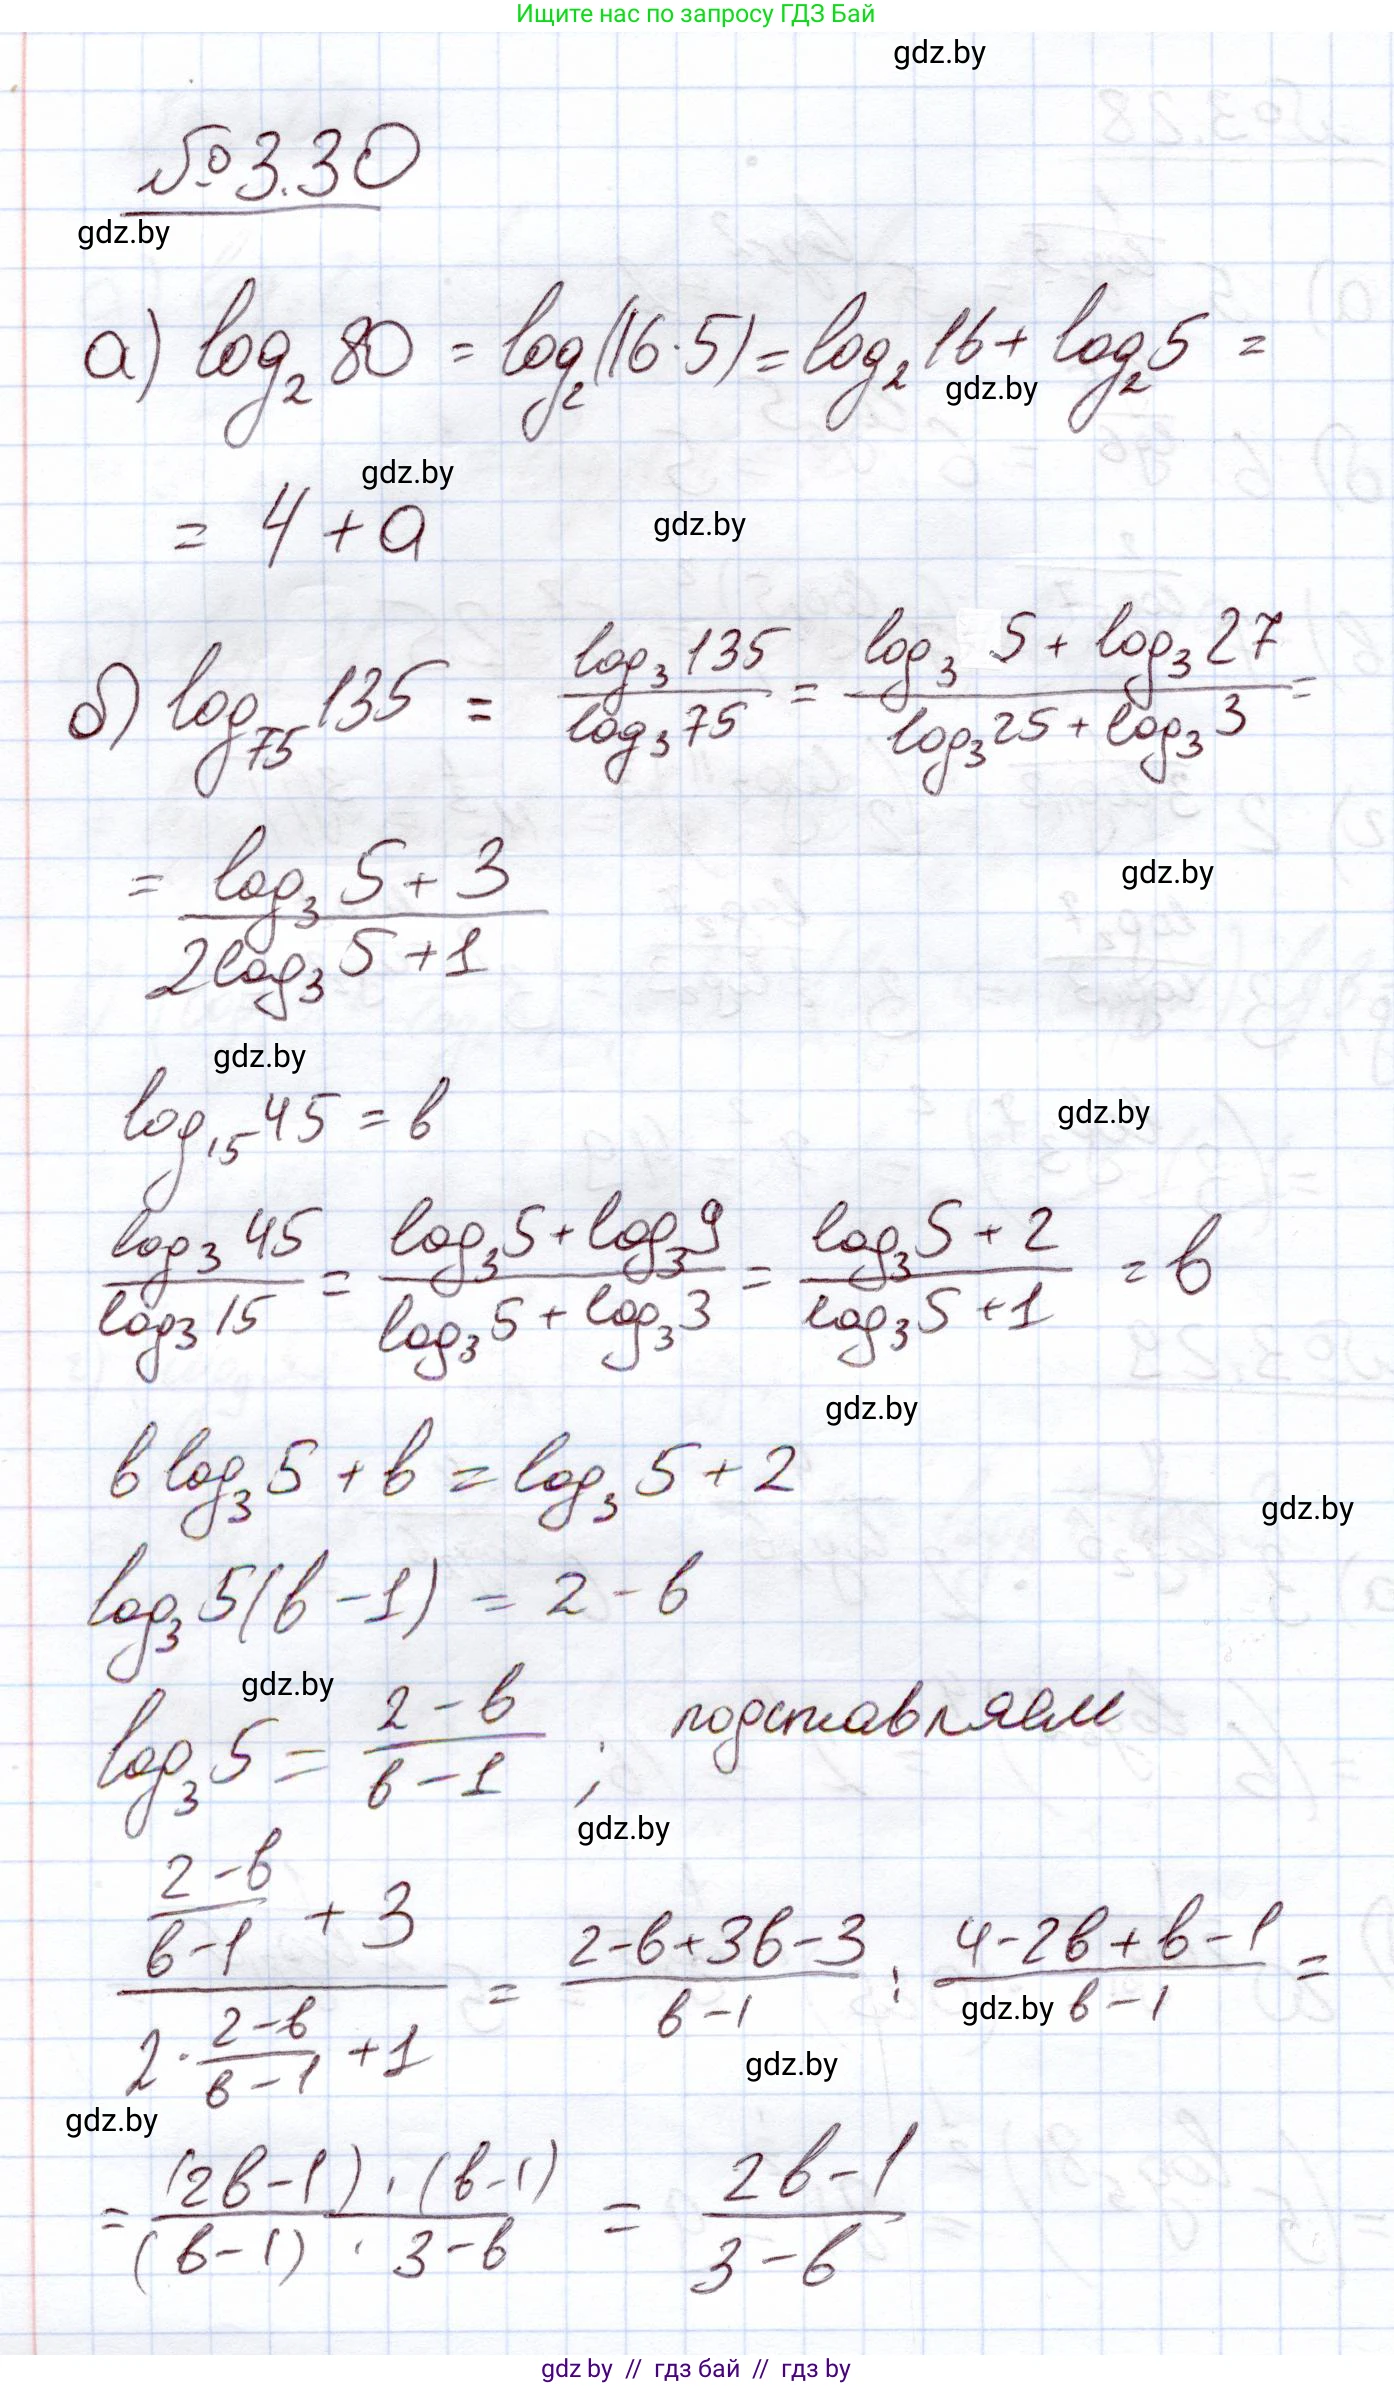 Ищите нас по запросу ГДЗ Бай
gdz.by
№3.30
gdz.by
а) log₂ 80 = log₂(16·5) = log₂ 16 + log₂ 5 =
gdz.by
gdz.by
= 4 + a
gdz.by
б) log₇₅ 135 = log₃ 135 / log₃ 75 = (log₃ 5 + log₃ 27) / (log₃ 25 + log₃ 3) =
= (log₃ 5 + 3) / (2log₃ 5 + 1)
gdz.by
gdz.by
log₁₅ 45 = b
gdz.by
log₃ 45 / log₃ 15 = (log₃ 5 + log₃ 9) / (log₃ 5 + log₃ 3) = (log₃ 5 + 2) / (log₃ 5 + 1) = b
gdz.by
b log₃ 5 + b = log₃ 5 + 2
gdz.by
log₃ 5(b - 1) = 2 - b
gdz.by
log₃ 5 = (2 - b) / (b - 1) ; подставляем
gdz.by
((2 - b) / (b - 1) + 3) / (2 · (2 - b) / (b - 1) + 1) = (2 - b + 3b - 3) / (b - 1) : (4 - 2b + b - 1) / (b - 1) =
gdz.by
gdz.by
gdz.by
= (2b - 1) · (b - 1) / (b - 1) · 3 - b = (2b - 1) / (3 - b)
gdz by // гдз бай // гдз by